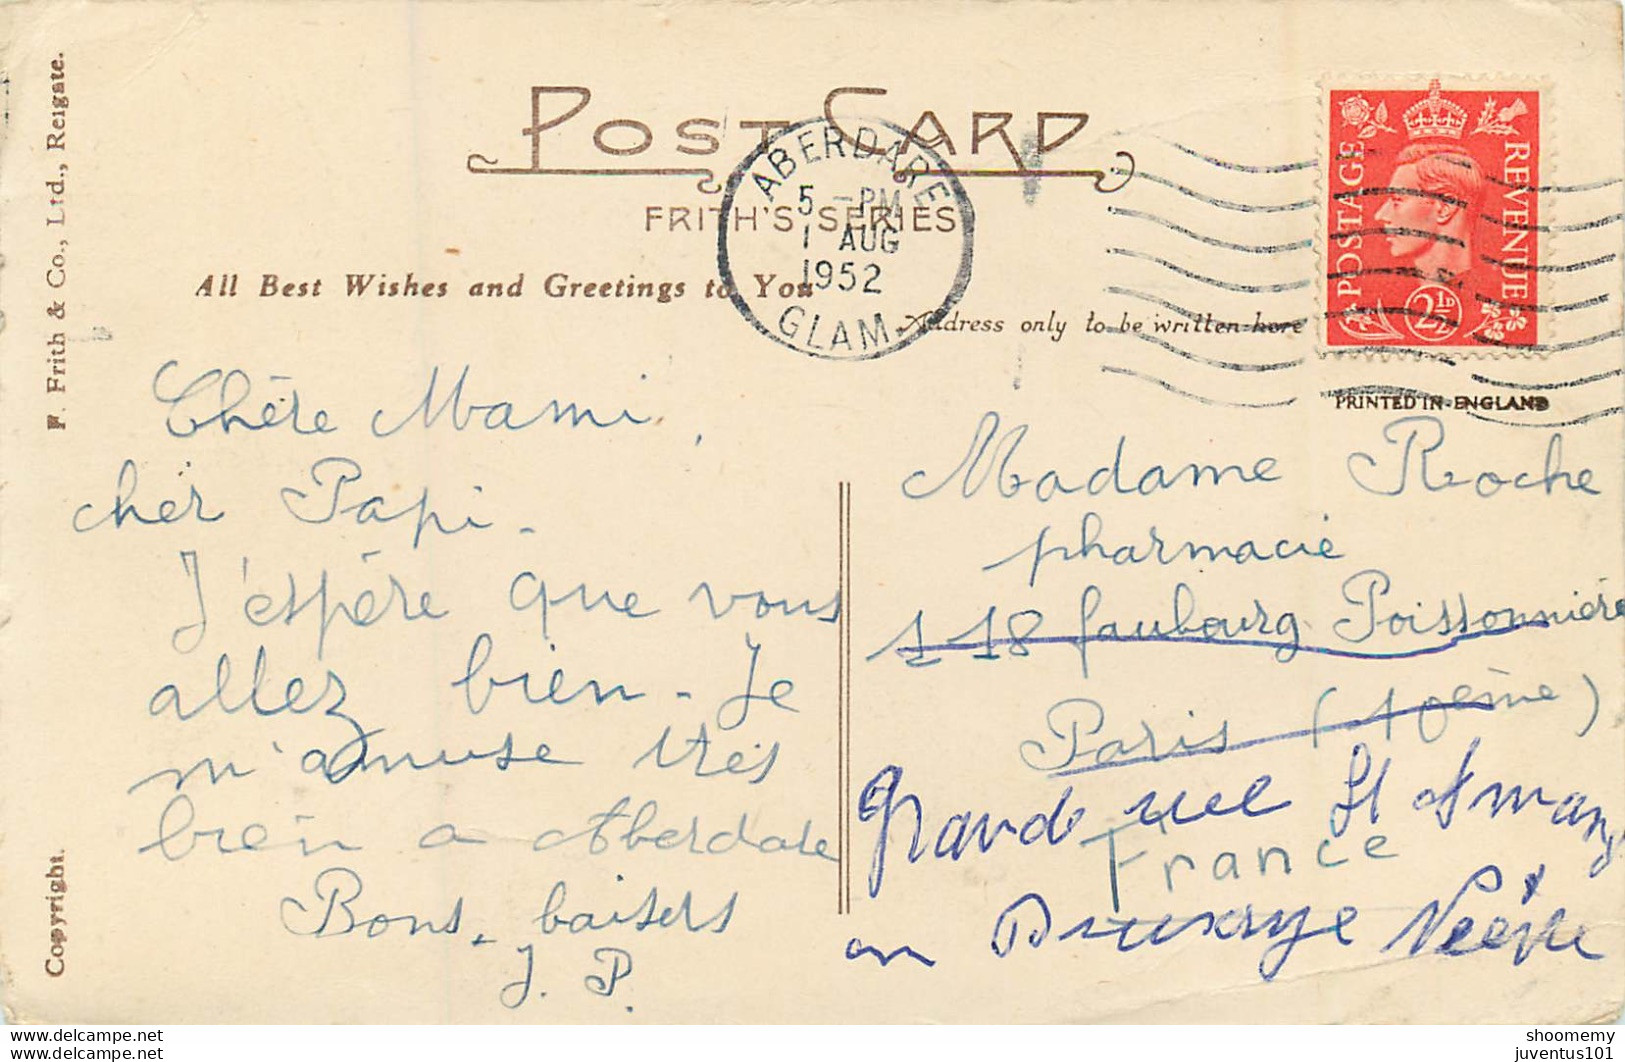 F. Frith & Co., Ltd., Reigate.
Copyright.
POST CARD
FRITH'S SERIES
All Best Wishes and Greetings to You
Address only to be written here
ABERDARE
5 - PM
1 AUG
1952
GLAM.
POSTAGE
REVENUE
2½D
PRINTED IN ENGLAND
Chère Mami,
cher Papi -
J'espère que vous
allez bien - Je
m'amuse très
bien a Aberdare
Bons baisers
J. P.
Madame Roche
pharmacie
118 faubourg Poissonnière
Paris (10ème)
Grande rue St
France
en
shoomemy
juventus101